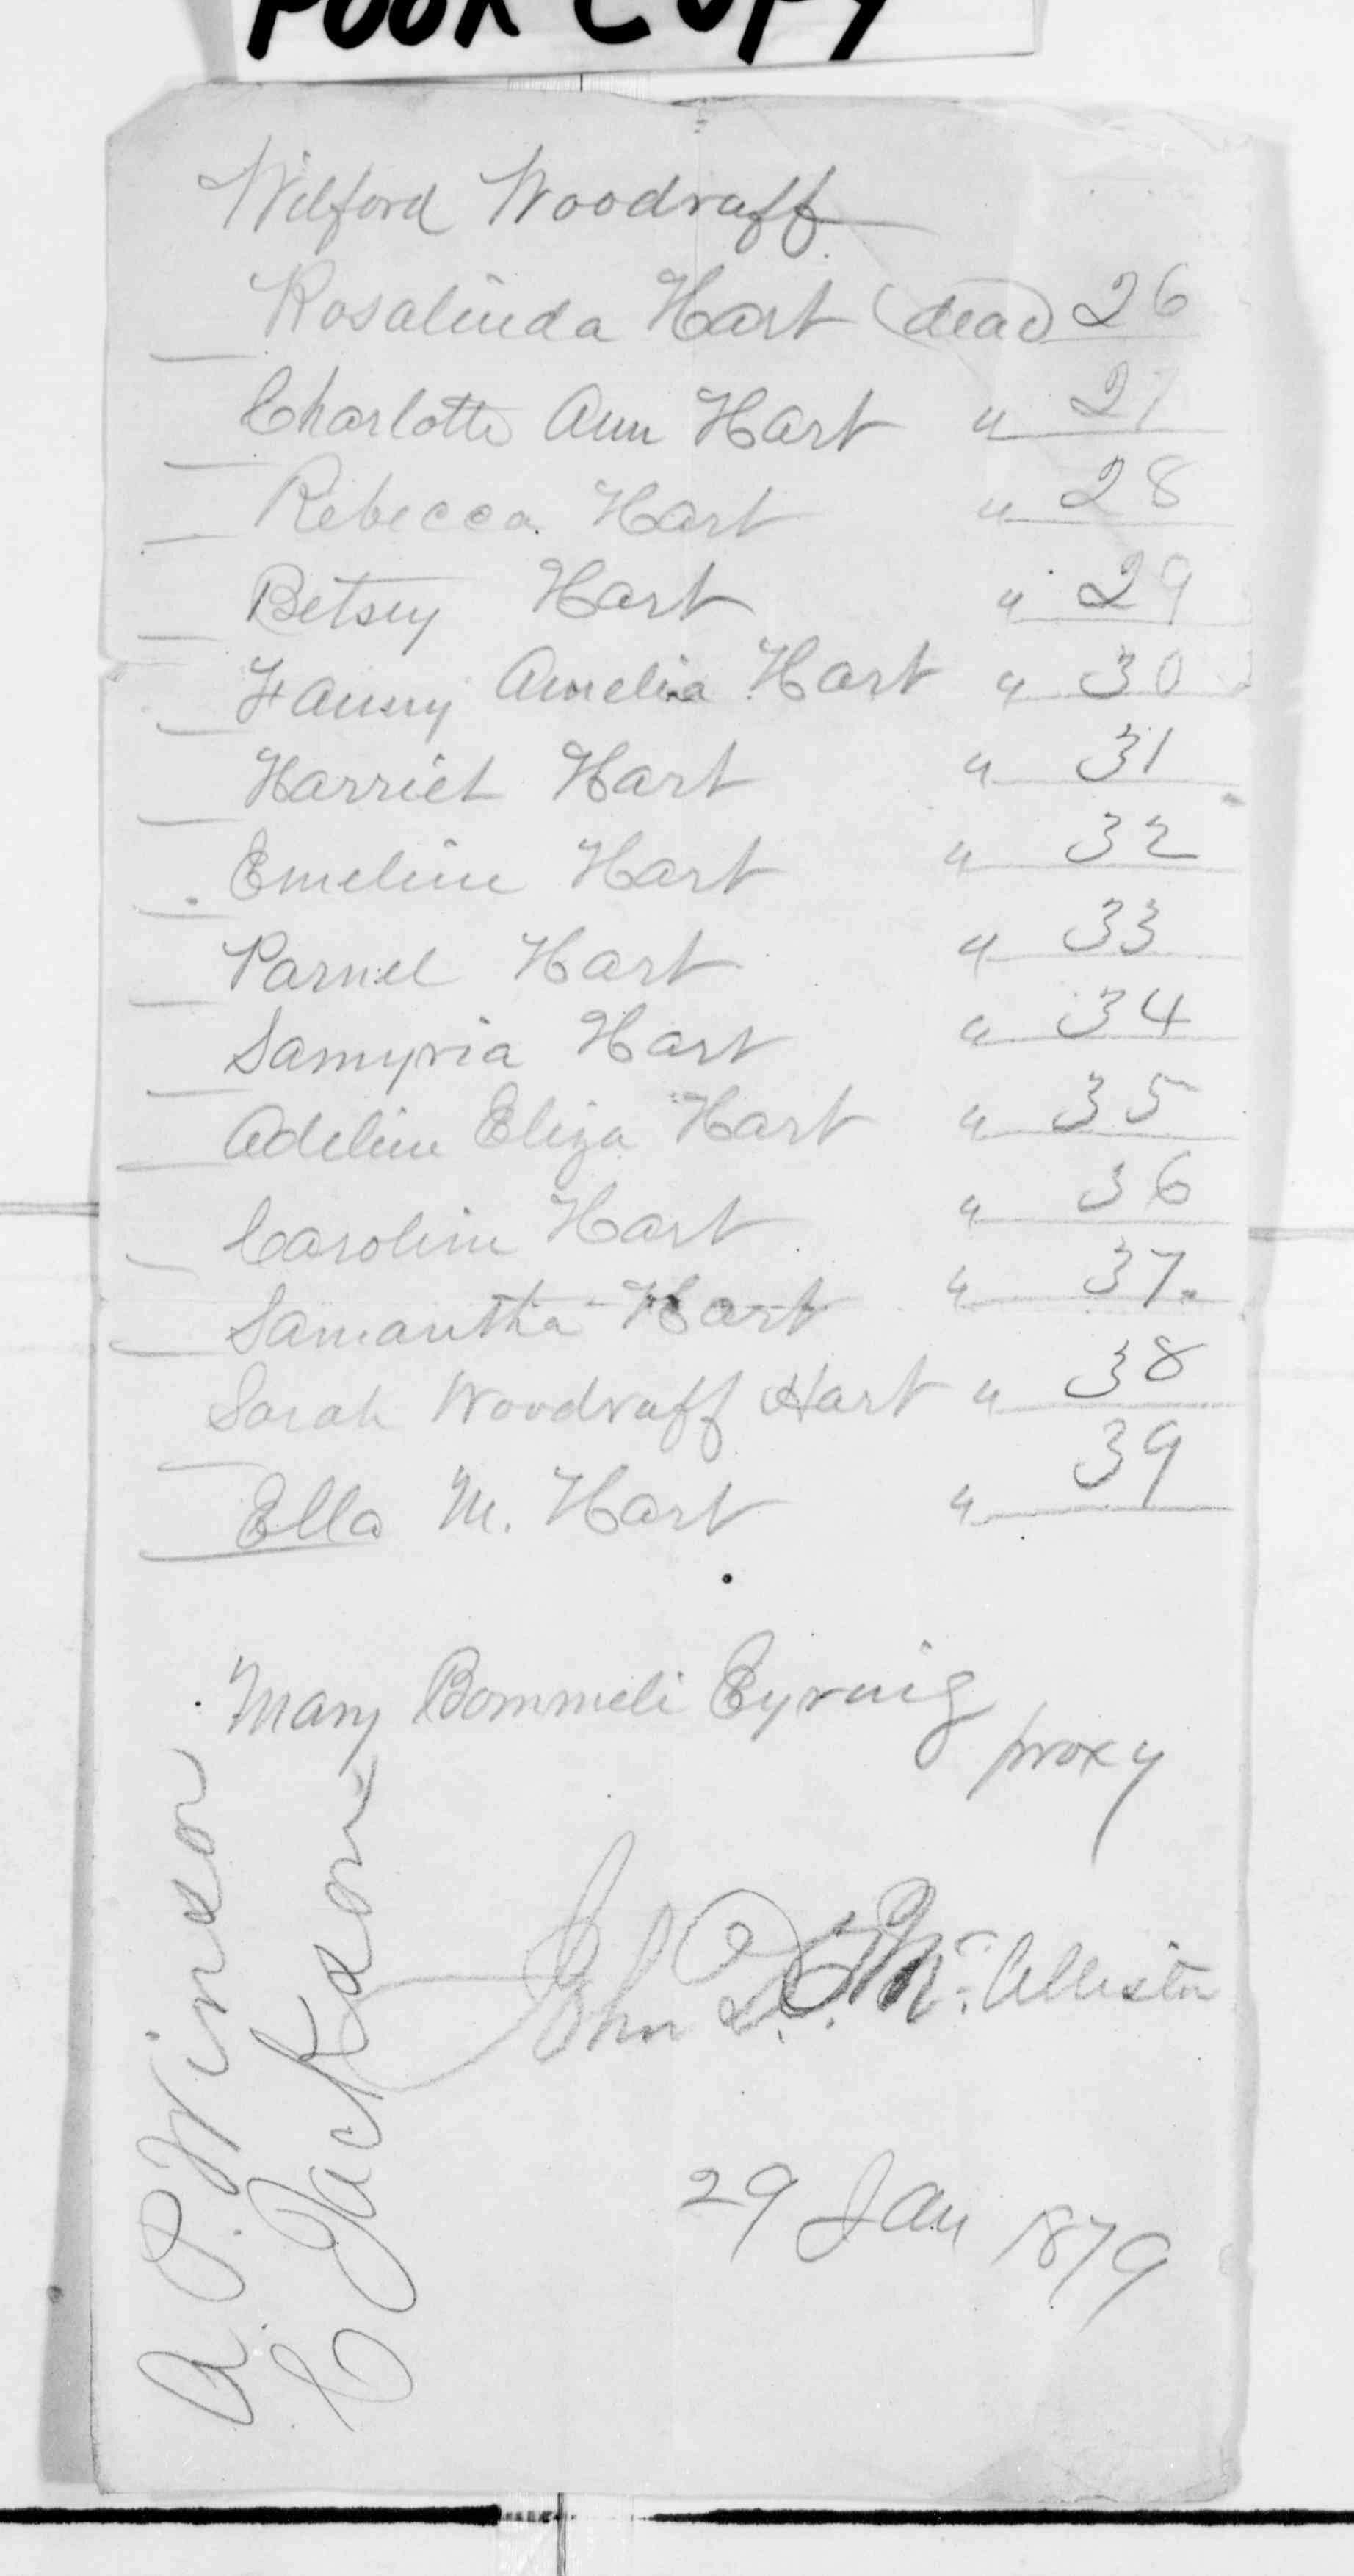 POOR COPY
Wilford Woodruff
Rosalinda Hart (dead) 26
Charlotte Ann Hart " 27
Rebecca Hart " 28
Betsey Hart " 29
Fanny Amelia Hart " 30
Harriet Hart " 31
Emeline Hart " 32
Parnel Hart " 33
Samyria Hart " 34
Adeline Eliza Hart " 35
Caroline Hart " 36
Samantha Hart " 37.
Sarah Woodruff Hart " 38
Ella M. Hart " 39
Mary Bommeli Eyring
proxy
John D. T. McAllister
29 Jan 1879
A. P. Winsor
C Jackson